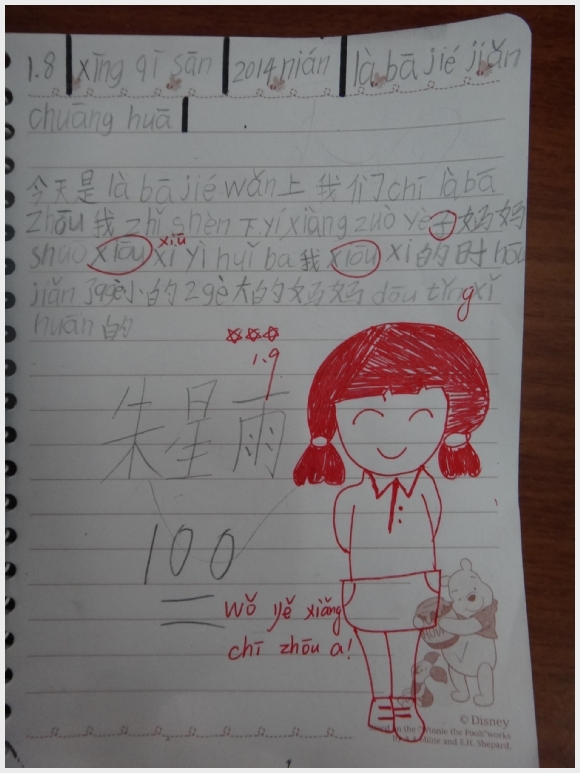 1.8 xīng qī sān 2014 nián là bā jié jiǎn
chuāng huā
今天是 là bā jié wǎn上 我们chī là bā
zhōu 我 zhǐ shèn 下 yí xiàng zuò yè 妈妈
shuō xiōu xī yì huǐ ba 我 xiōu xī 的时 hōu
xiū
jiǎn 了 小的 2 gè 大的 妈妈 dōu tǐng xǐ
huān 的
1.9
朱星雨
100
wǒ yě xiǎng
chī zhōu a!
© Disney
Based on the "Winnie the Pooh" works
By A.A. Milne and E.H. Shepard.
1